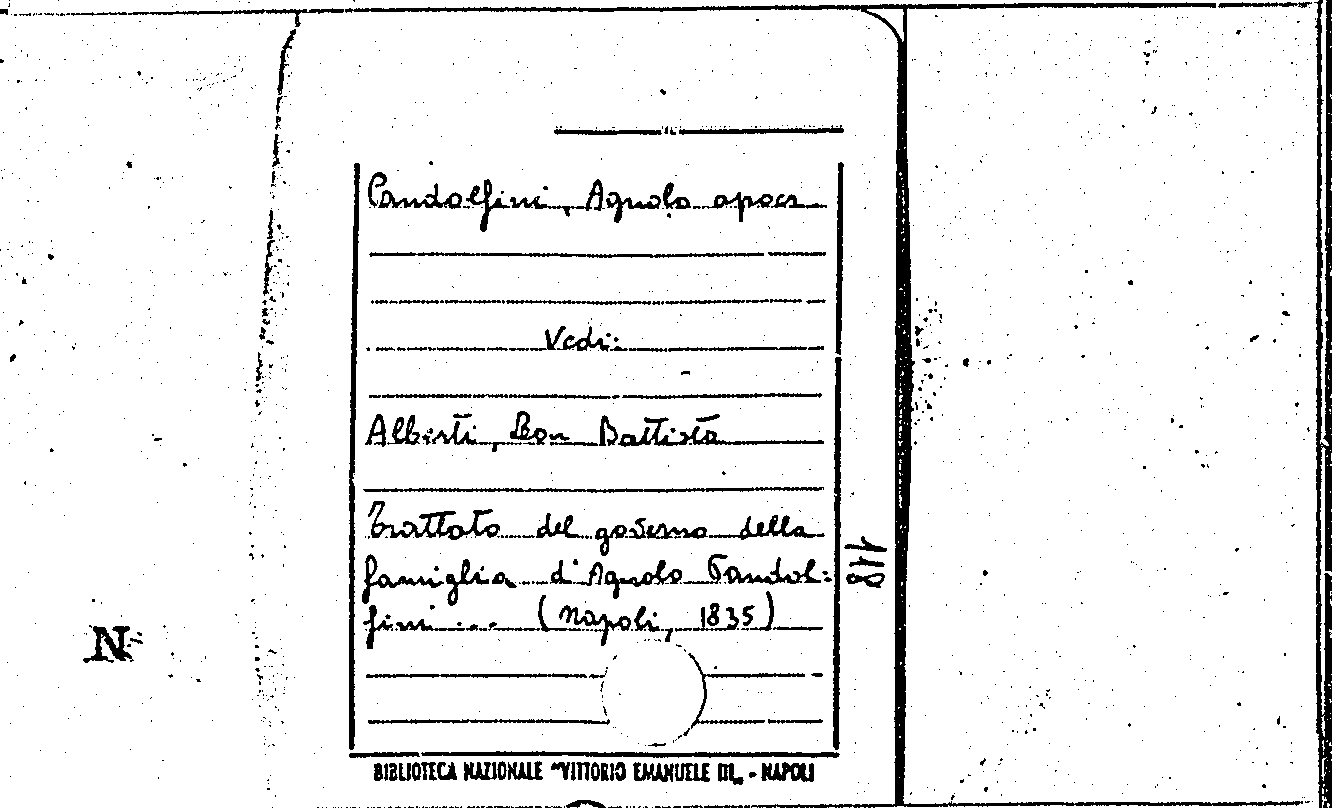 Pandolfini, Agnolo apocr.
Vedi:
Alberti, Leon Battista
Trattato del governo della
famiglia d'Agnolo Pandol=
fini ... (Napoli, 1835)
118
N
BIBLIOTECA NAZIONALE "VITTORIO EMANUELE III„ - NAPOLI